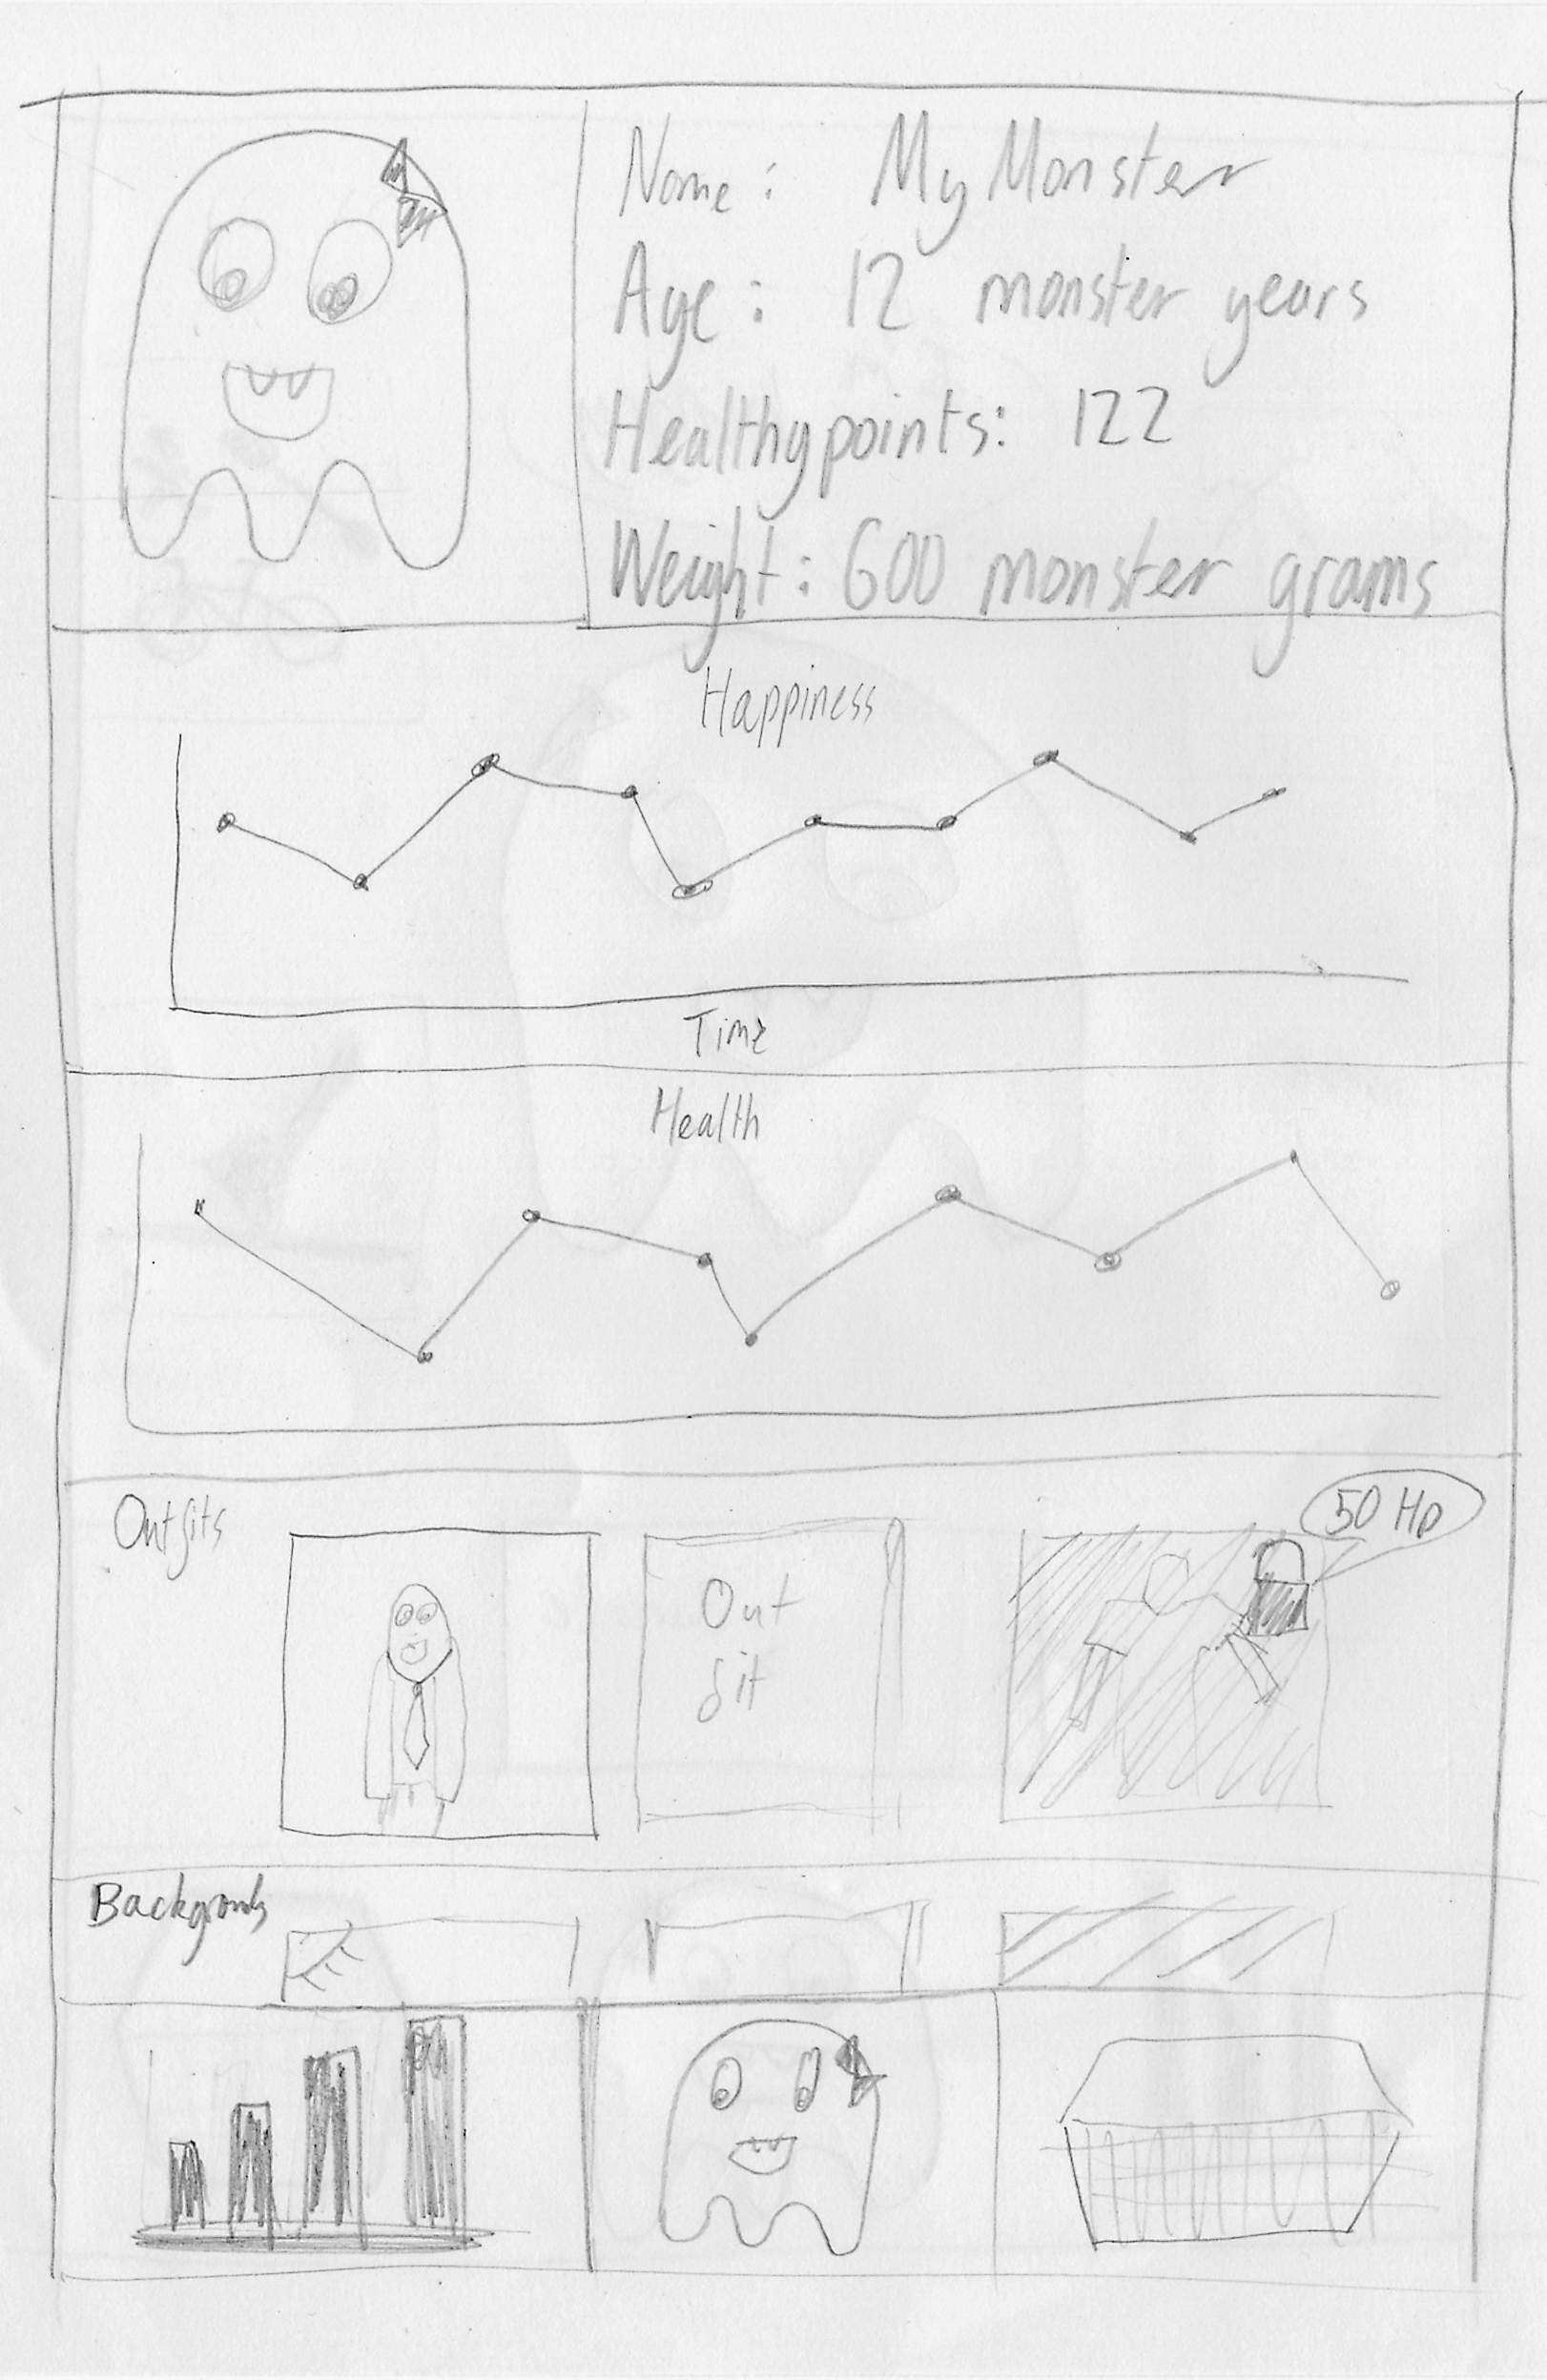 Name: My Monster
Age: 12 monster years
Healthy points: 122
Weight: 600 monster grams
Happiness
Time
Health
Outfits
50 Hp
Out
fit
Backgrounds